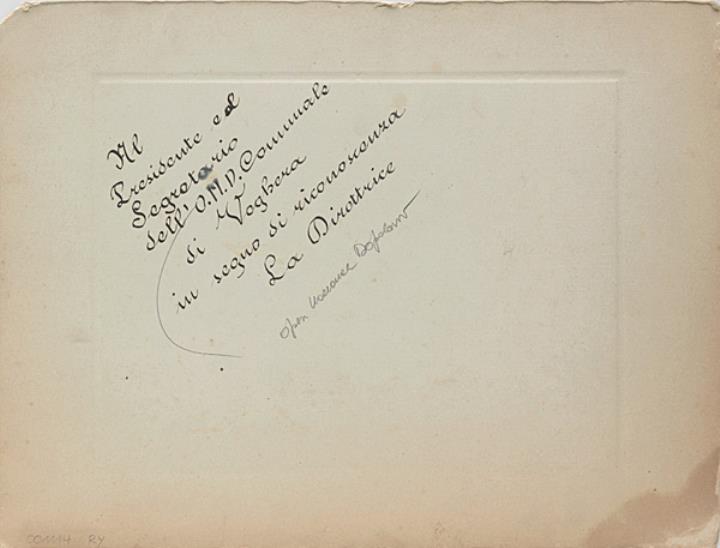 Al
Presidente ed
Segretario
dell' O.N.D. Comunale
di Voghera
in segno di riconoscenza
La Direttrice
Opera Nazionale Dopolavoro
CO1114 RY